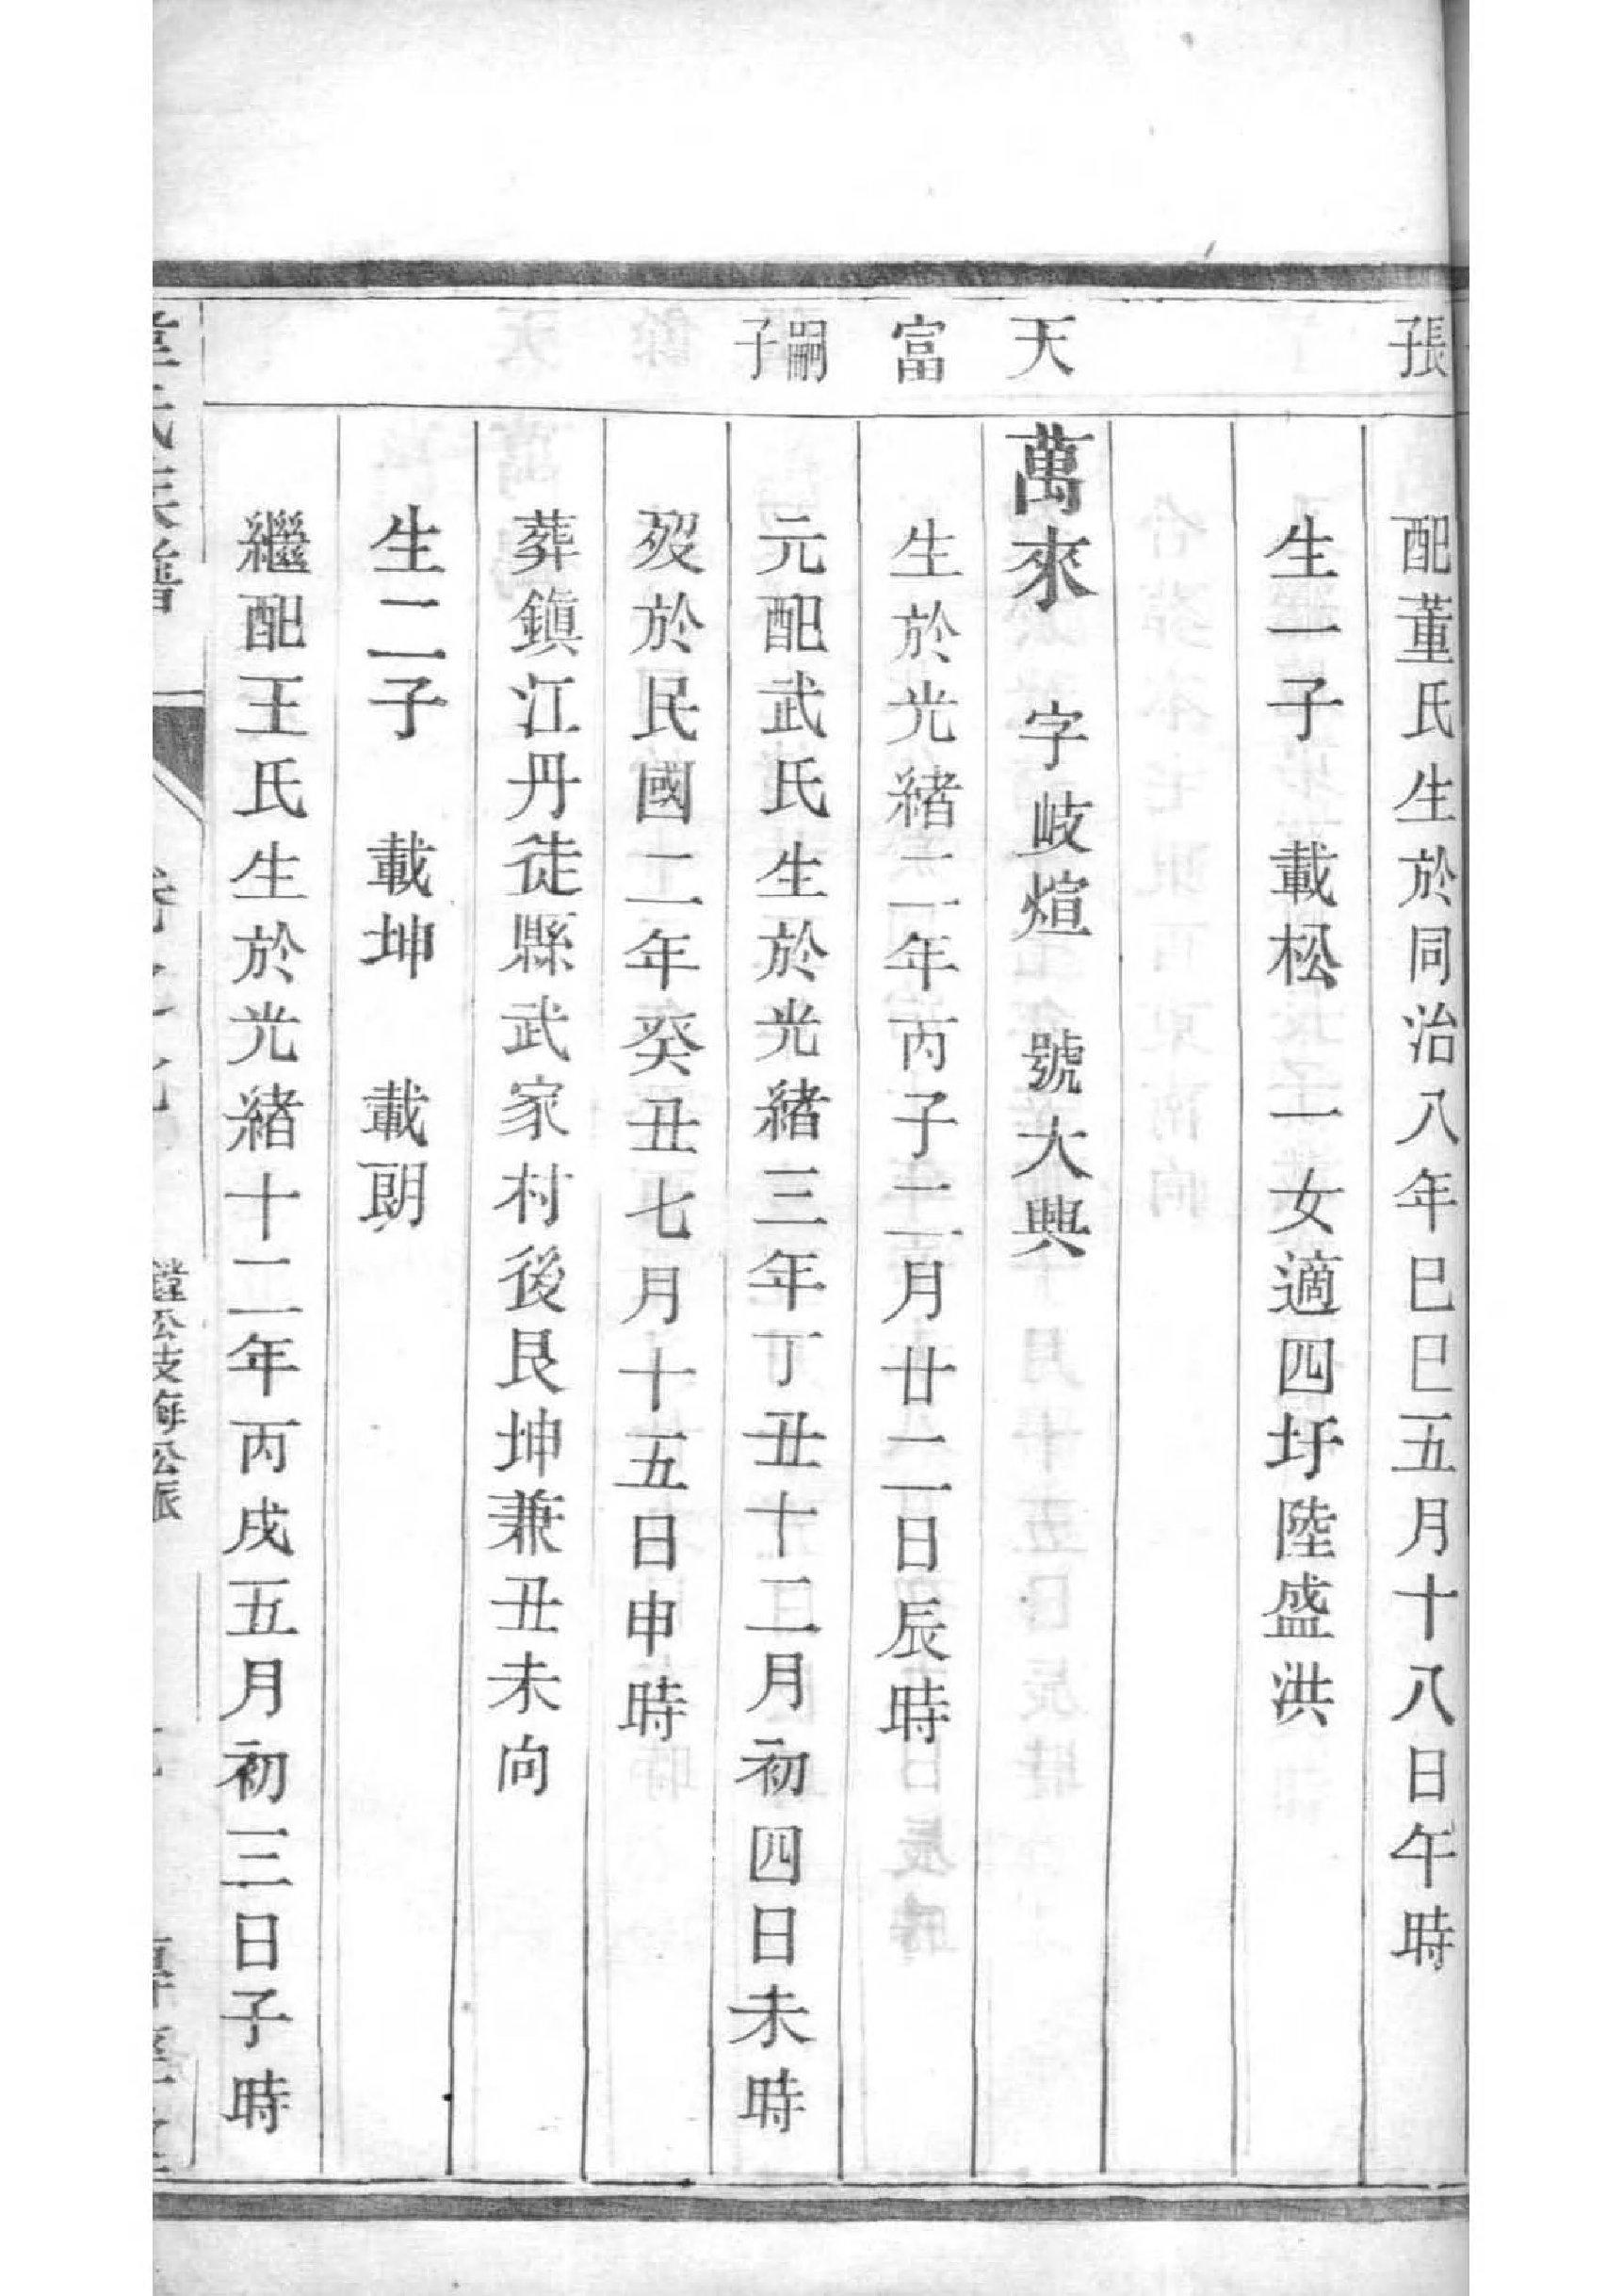 張子
配董氏生於同治八年巳巳五月十八日午時
生一子　載松　一女適四圩陸盛洪
天富嗣子
萬來　字岐煊　號大興
生於光緒二年丙子二月廿二日辰時
元配武氏生於光緒三年丁丑十二月初四日未時
歿於民國二年癸丑七月十五日申時
葬鎭江丹徒縣武家村後艮坤兼丑未向
生二子　載坤　載朗
繼配王氏生於光緒十二年丙戌五月初三日子時
氏族譜
公支海公派